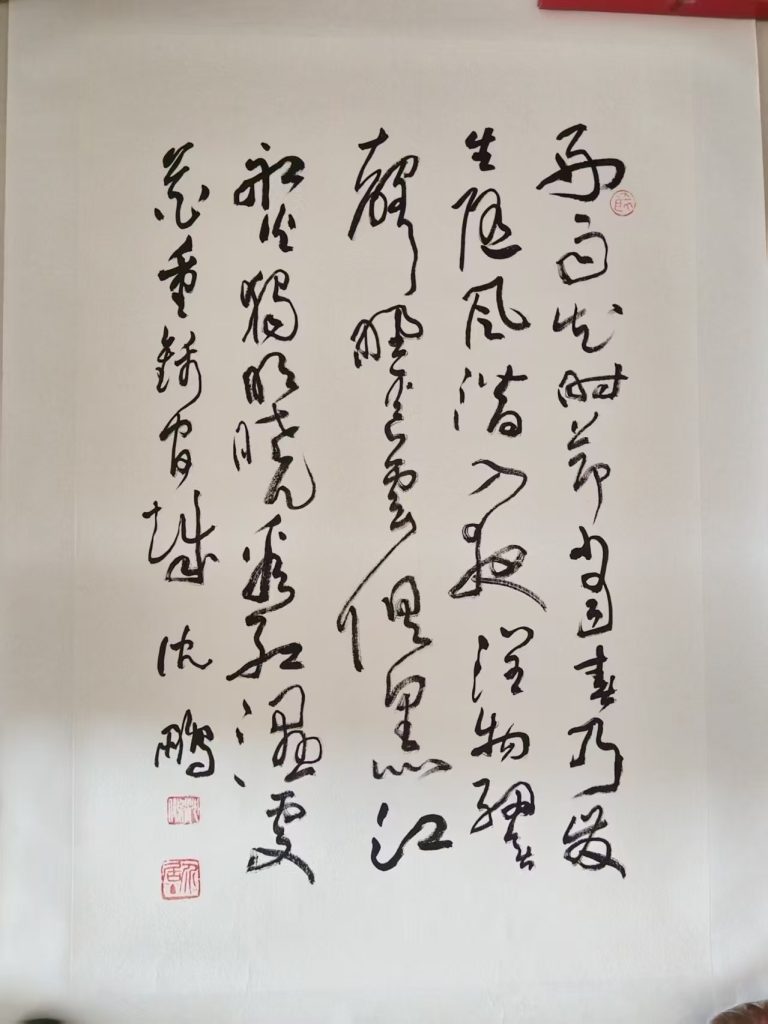 好雨知時節當春乃發
生隨風潛入夜潤物細無
聲野徑雲俱黑江
船火獨明曉看紅濕處
花重錦官城 沈鵬